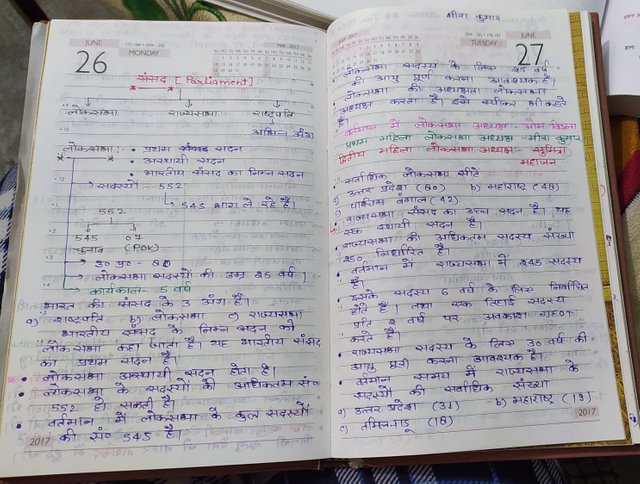 JUNE
26
177-188 • WK - 26
MONDAY
MAY - 2017
संसद [Parliament]:
लोकसभा राज्यसभा राष्ट्रपति
अभिन्न अंग
लोकसभा:- • प्रथम सदन
• अस्थायी सदन
• भारतीय संसद का निम्न सदन
→ सदस्यों - 552
↳ 545 भाग ले रहे हैं।
552
545 07
चुनाव (POK)
→ उ० प्र० - 80
→ लोकसभा सदस्यों की उम्र 25 वर्ष
→ कार्यकाल 5 वर्ष
भारत की संसद के 3 अंग हैं।
a) राष्ट्रपति b) लोकसभा c) राज्यसभा
भारतीय संसद के निम्न सदन को
लोकसभा कहा जाता है। यह भारतीय संसद
का प्रथम सदन है।
• लोकसभा अस्थायी सदन होता है।
• लोकसभा के सदस्यों की अधिकतम सं०
552 हो सकती है।
• वर्तमान में लोकसभा के कुल सदस्यों
की सं० 545 है।
2017
मीरा कुमार
TUESDAY
JUNE
27
• लोकसभा सदस्य के लिए 25 वर्ष
की आयु पूर्ण करना आवश्यक है।
• लोकसभा की अध्यक्षता लोकसभा
अध्यक्ष करता है। इसे स्पीकर भी कहते
हैं।
वर्तमान में लोकसभा अध्यक्ष - ओम बिड़ला
प्रथम महिला लोकसभा अध्यक्ष - मीरा कुमार
द्वितीय महिला लोकसभा अध्यक्ष - सुमित्रा
महाजन
• सर्वाधिक लोकसभा सीटे
a) उत्तर प्रदेश (80) b) महाराष्ट्र (48)
c) पश्चिम बंगाल (42)
• राज्यसभा संसद का उच्च सदन है। यह
एक स्थायी सदन है।
• राज्यसभा की अधिकतम सदस्य संख्या
250 निर्धारित है।
• वर्तमान में राज्यसभा में 245 सदस्य
हैं।
• इसके सदस्य 6 वर्ष के लिए निर्वाचित
होते हैं। तथा एक तिहाई सदस्य
प्रति 2 वर्ष पर अवकाश ग्रहण
करते हैं।
• राज्यसभा सदस्य के लिए 30 वर्ष की
आयु पूरी करना आवश्यक है।
• वर्तमान समय में राज्यसभा के
सदस्यों की सर्वाधिक संख्या
a) उत्तर प्रदेश (31) b) महाराष्ट्र (19)
c) तमिलनाडु (18)
2017